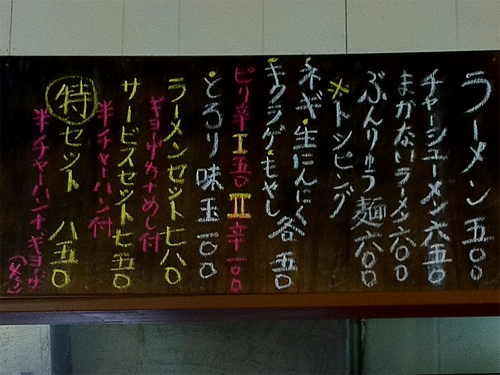 ラーメン 五〇〇
チャーシューメン 六五〇
まかないラーメン 六〇〇
ぶんりゅう麺 六〇〇
*トッピング
ネギ・生にんにく
キクラゲ・もやし 各 五〇
ピリ辛 I 五〇 II 辛一〇〇
とろり味玉 一〇〇
ラーメンセット 七八〇
ギョーザ カナめし付
サービスセット 七五〇
半チャーハン付
特セット 八五〇
半チャーハン ナギョーザ